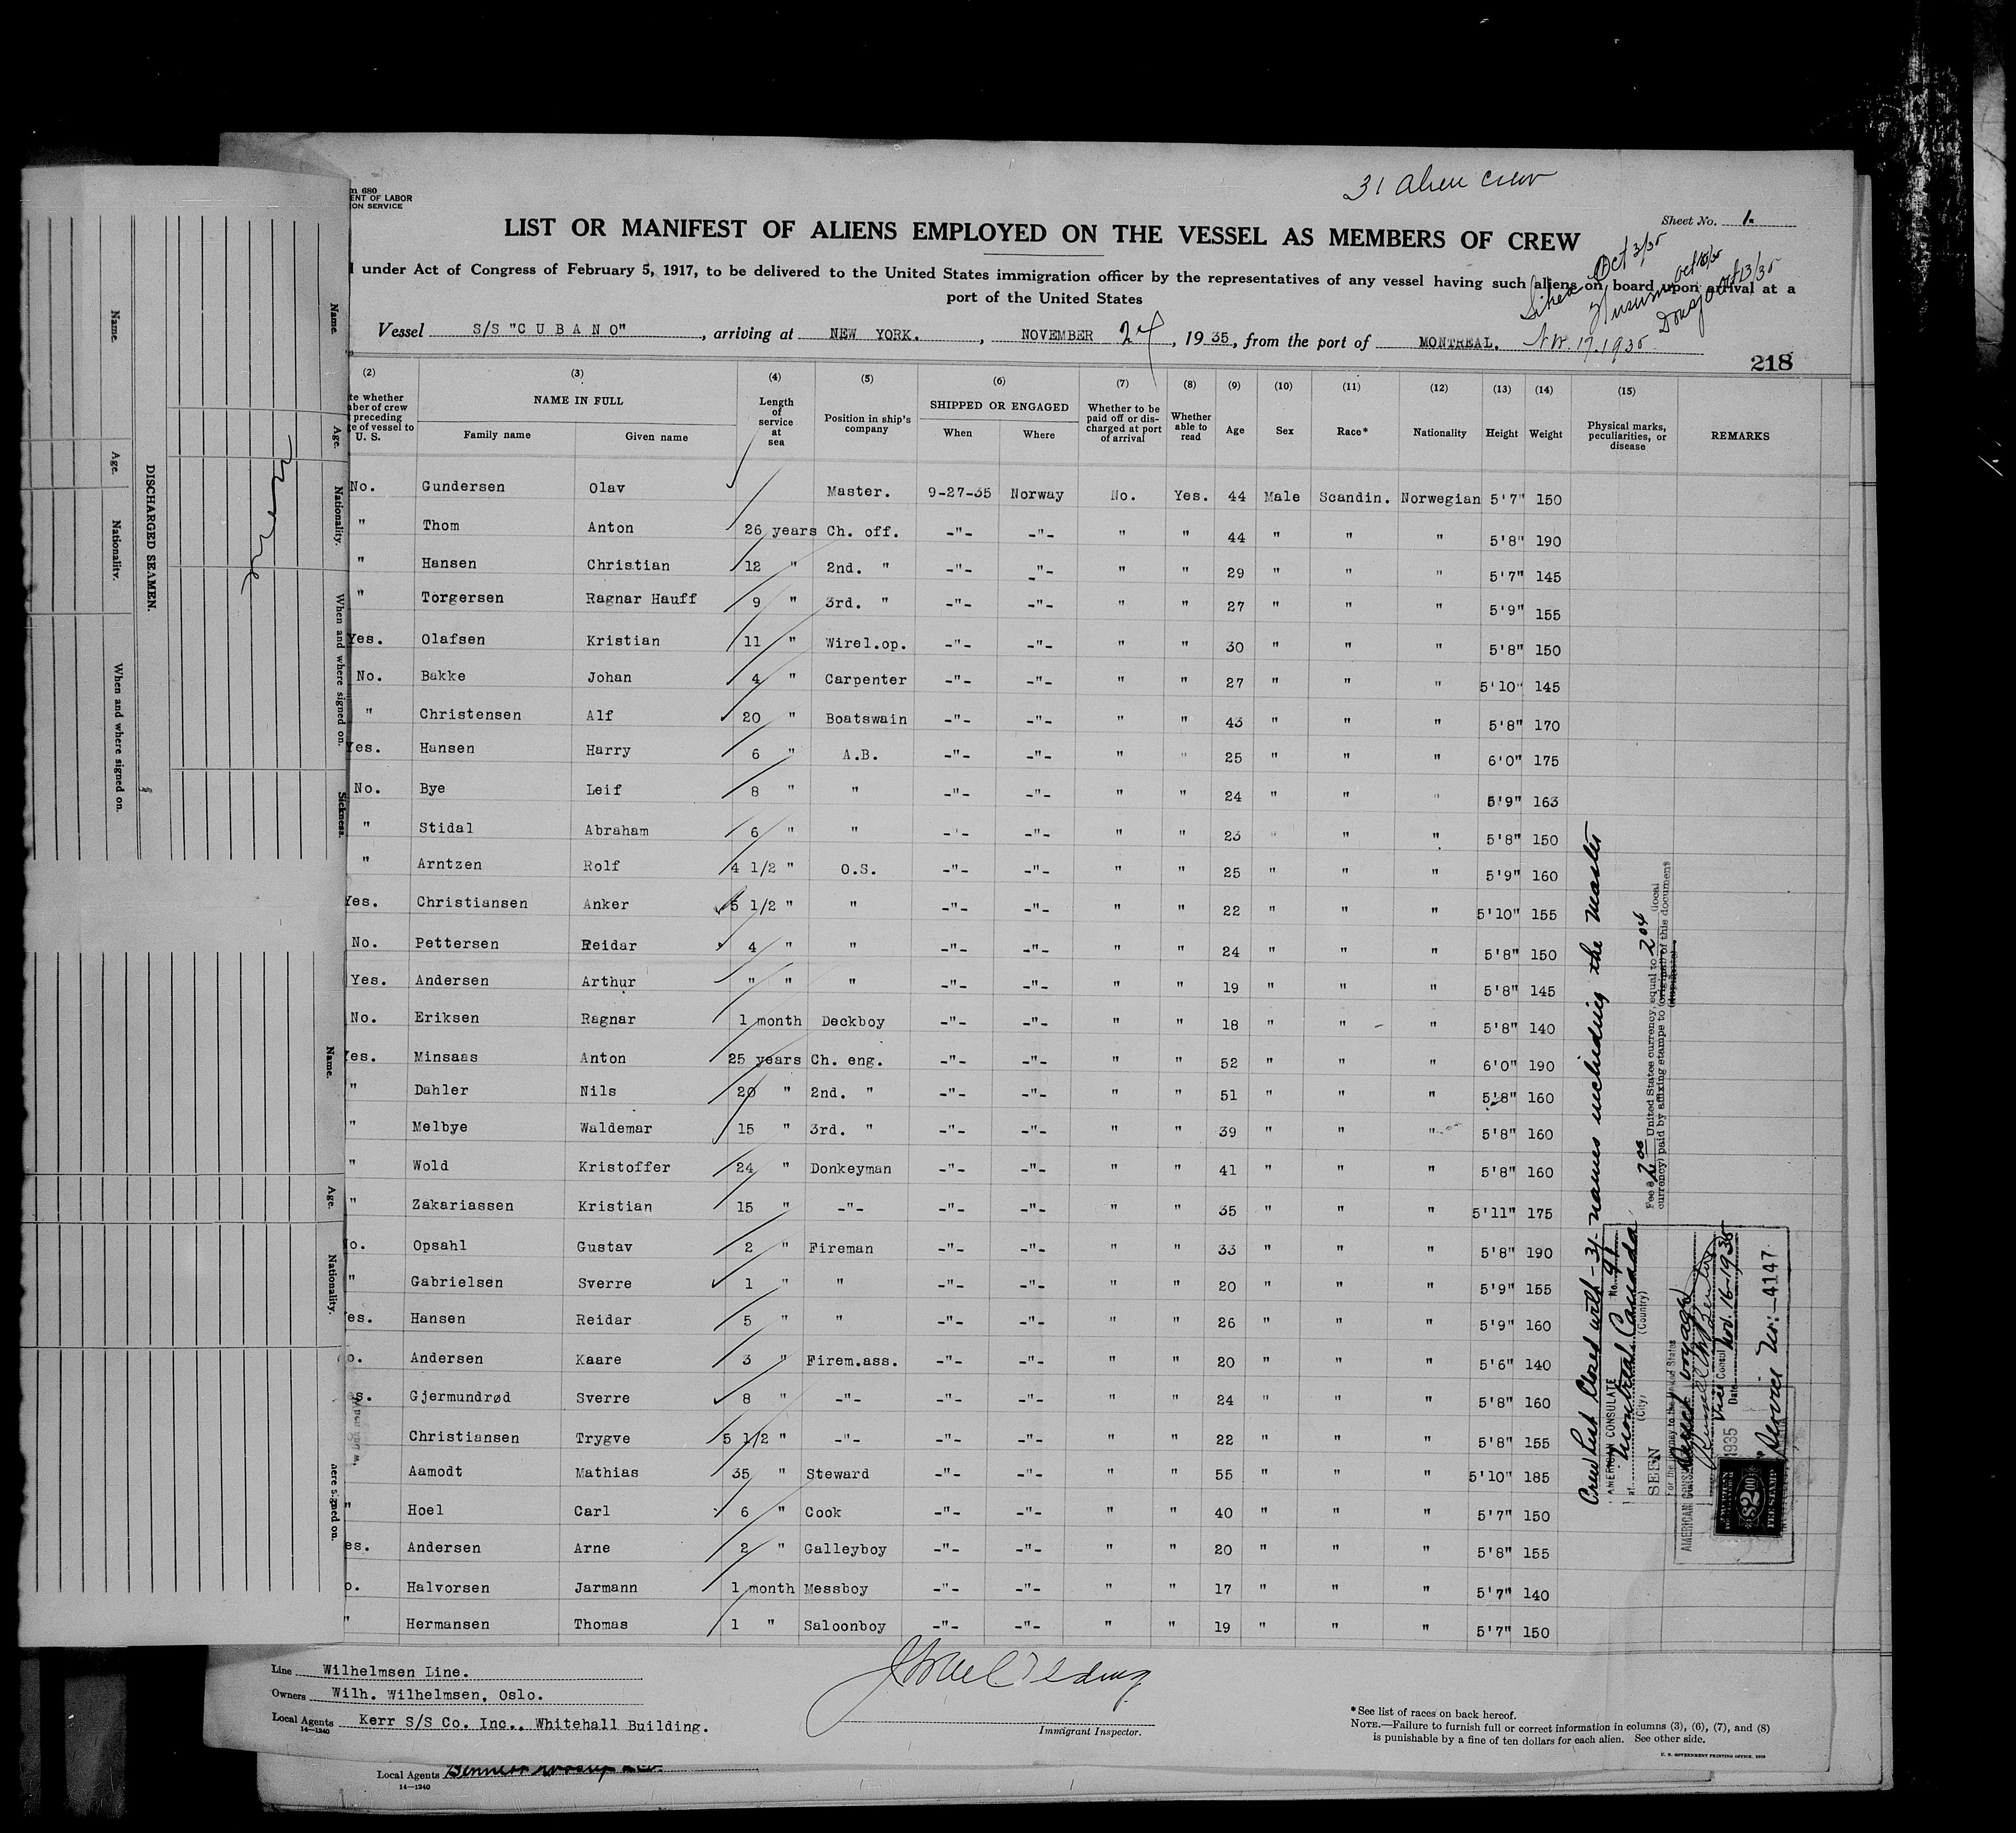 m 680
ENT OF LABOR
ON SERVICE
31 alien crew
Sheet No. 1.
LIST OR MANIFEST OF ALIENS EMPLOYED ON THE VESSEL AS MEMBERS OF CREW
under Act of Congress of February 5, 1917, to be delivered to the United States immigration officer by the representatives of any vessel having such aliens on board upon arrival at a
port of the United States
Oct 3/35
Oct 13/35
Vessel S/S "C U B A N O" , arriving at NEW YORK. , NOVEMBER 24 , 19 35, from the port of MONTREAL. Nov. 17. 1935
218
(2) (3) (4) (5) (6) (7) (8) (9) (10) (11) (12) (13) (14) (15)
te whether
ber of crew
preceding
e of vessel to
U. S.
NAME IN FULL
Family name Given name
Length
of
service
at
sea
Position in ship's
company
SHIPPED OR ENGAGED
When Where
Whether to be
paid off or dis-
charged at port
of arrival
Whether
able to
read
Age Sex Race* Nationality Height Weight
Physical marks,
peculiarities, or
disease
REMARKS
No. Gundersen Olav Master. 9-27-35 Norway No. Yes. 44 Male Scandin. Norwegian 5'7" 150
" Thom Anton 26 years Ch. off. -"- -"- " " 44 " " " 5'8" 190
" Hansen Christian 12 " 2nd. " -"- -"- " " 29 " " " 5'7" 145
" Torgersen Ragnar Hauff 9 " 3rd. " -"- -"- " " 27 " " " 5'9" 155
Yes. Olafsen Kristian 11 " Wirel.op. -"- -"- " " 30 " " " 5'8" 150
No. Bakke Johan 4 " Carpenter -"- -"- " " 27 " " " 5'10" 145
" Christensen Alf 20 " Boatswain -"- -"- " " 43 " " " 5'8" 170
Yes. Hansen Harry 6 " A.B. -"- -"- " " 25 " " " 6'0" 175
No. Bye Leif 8 " " -"- -"- " " 24 " " " 5'9" 163
" Stidal Abraham 6 " " -"- -"- " " 23 " " " 5'8" 150
" Arntzen Rolf 4 1/2 " O.S. -"- -"- " " 25 " " " 5'9" 160
Yes. Christiansen Anker 5 1/2 " " -"- -"- " " 22 " " " 5'10" 155
No. Pettersen Reidar 4 " " -"- -"- " " 24 " " " 5'8" 150
Yes. Andersen Arthur " " " -"- -"- " " 19 " " " 5'8" 145
No. Eriksen Ragnar 1 month Deckboy -"- -"- " " 18 " " " 5'8" 140
Yes. Minsaas Anton 25 years Ch. eng. -"- -"- " " 52 " " " 6'0" 190
" Dahler Nils 20 " 2nd. " -"- -"- " " 51 " " " 5'8" 160
" Melbye Waldemar 15 " 3rd. " -"- -"- " " 39 " " " 5'8" 160
" Wold Kristoffer 24 " Donkeyman -"- -"- " " 41 " " " 5'8" 160
" Zakariassen Kristian 15 " -"- -"- -"- " " 35 " " " 5'11" 175
o. Opsahl Gustav 2 " Fireman -"- -"- " " 33 " " " 5'8" 190
" Gabrielsen Sverre 1 " " -"- -"- " " 20 " " " 5'9" 155
es. Hansen Reidar 5 " " -"- -"- " " 26 " " " 5'9" 160
o. Andersen Kaare 3 " Firem.ass. -"- -"- " " 20 " " " 5'6" 140
es. Gjermundrød Sverre 8 " -"- -"- -"- " " 24 " " " 5'8" 160
Christiansen Trygve 5 1/2 " -"- -"- -"- " " 22 " " " 5'8" 155
Aamodt Mathias 35 " Steward -"- -"- " " 55 " " " 5'10" 185
" Hoel Carl 6 " Cook -"- -"- " " 40 " " " 5'7" 150
es. Andersen Arne 2 " Galleyboy -"- -"- " " 20 " " " 5'8" 155
o. Halvorsen Jarmann 1 month Messboy -"- -"- " " 17 " " " 5'7" 140
" Hermansen Thomas 1 " Saloonboy -"- -"- " " 19 " " " 5'7" 150
Crew List Closed with -31- names including the Master
AMERICAN CONSULATE No. 91
at Montreal Canada
(City) (Country)
SEEN
For the journey to the United States
Vice Consul
Date Nov. 16-1935
Service No:-4147
Fee $ 2.00 United States currency, equal to 2.04 (local
currency) paid by affixing stamps to (original) of this document
(duplicate)
AMERICAN
$2.00
FEE STAMP
Line Wilhelmsen Line.
Owners Wilh. Wilhelmsen, Oslo.
Local Agents Kerr S/S Co. Inc., Whitehall Building.
14—1240
Immigrant Inspector.
*See list of races on back hereof.
NOTE.—Failure to furnish full or correct information in columns (3), (6), (7), and (8)
is punishable by a fine of ten dollars for each alien. See other side.
U. S. GOVERNMENT PRINTING OFFICE
Local Agents
14—1240
DISCHARGED SEAMEN.
Name. Age. Nationality. When and where signed on.
Name. Age. Nationality. When and where signed on. Sickness.
Name. Age. Nationality. here signed on.